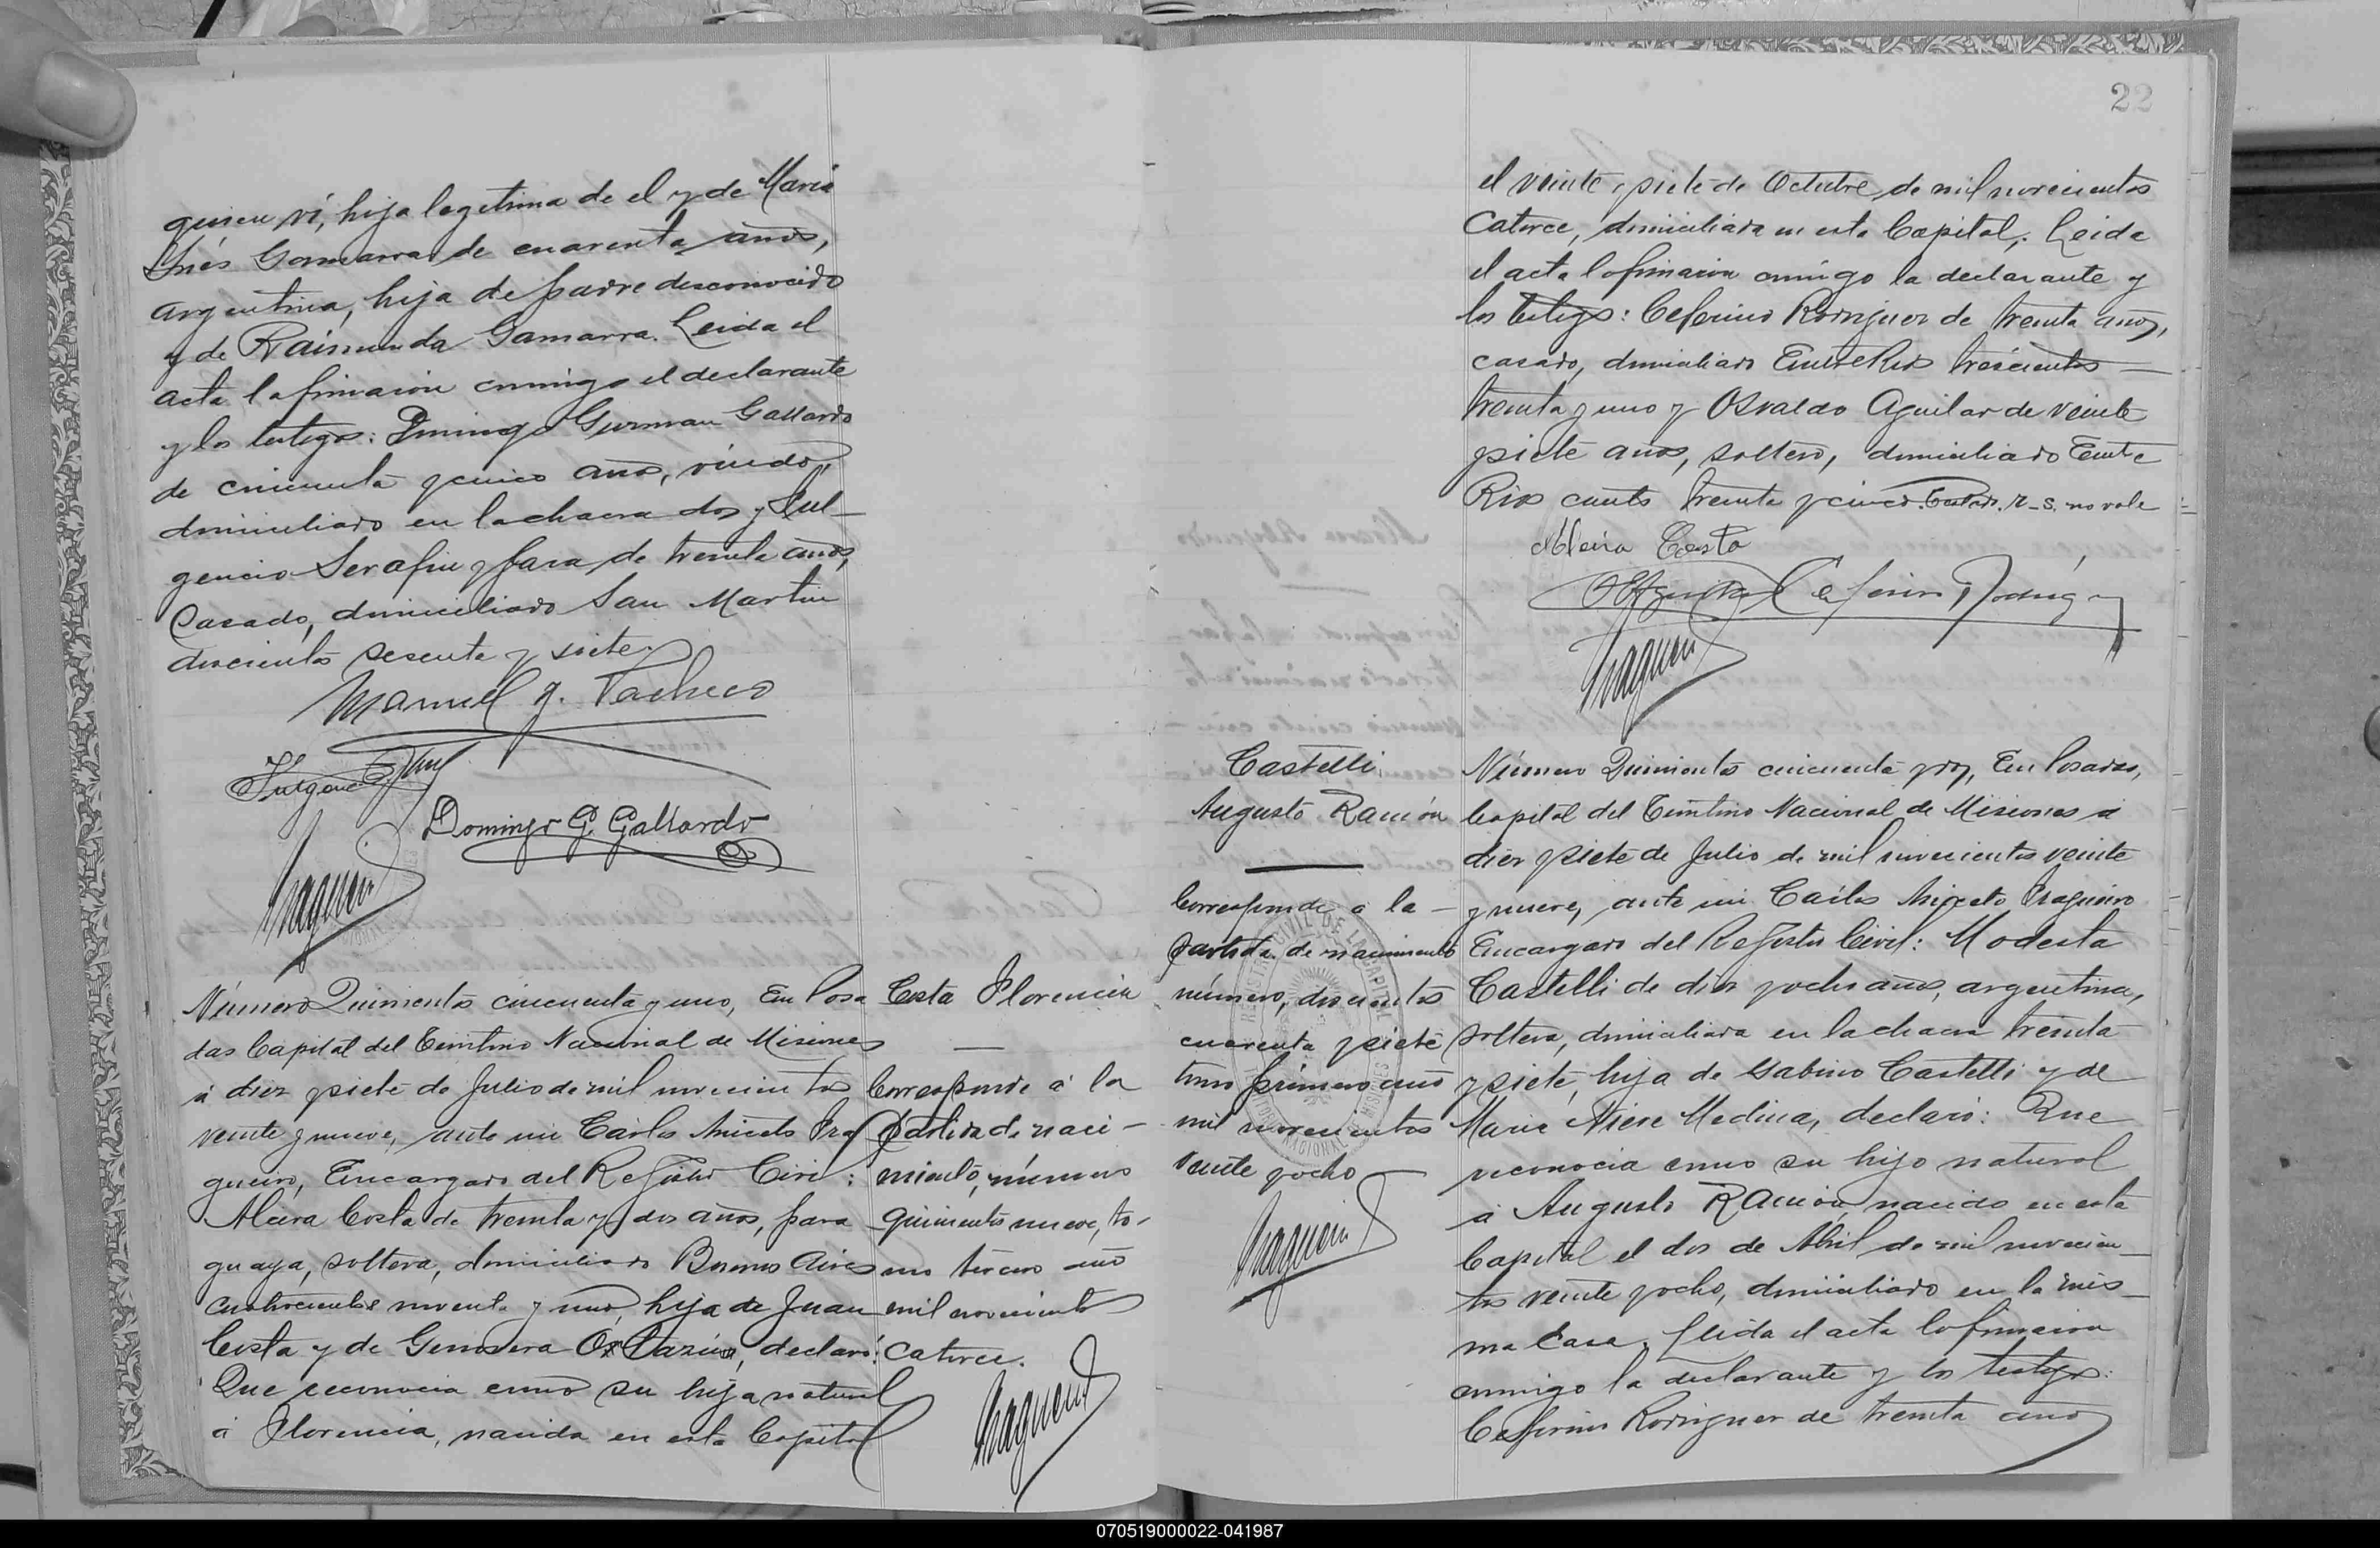 quien ví, hija legitima de el y de Maria
Inés Gamarra de cuarenta años,
argentina, hija de padre desconocido
y de Raimunda Gamarra. Leida el
acta la firmaron conmigo el declarante
y los testigos: Domingo Guzman Gallardo
de cincuenta y cinco años, viudo,
domiciliado en la chacra dos y Ful-
gencio Serafin y de treinta años,
Casado, domiciliado San Martin
doscientos sesenta y siete.
Manuel J. Pacheco
Domingo G. Gallardo
Número Quinientos cincuenta y uno, En Posa
das Capital del Territorio Nacional de Misiones
á diez y siete de Julio de mil novecientos
veinte y nueve, ante mi Carlos Aniceto Ira
gueiro, Encargado del Registro Civil:
Alcira Costa de treinta y dos años, para
guaya, soltera, domiciliado Buenos Aires
cuatrocientos noventa y uno, hija de Juan
Costa y de declaró:
Que reconocia como su hija natural
á Florencia, nacida en esta Capital
Costa Florencia
Corresponde á la
Partida de naci-
miento, número
quinientos nueve, to-
mo tercero año
mil novecientos
catorce.
22
el veinte y siete de Octubre de mil novecientos
Catorce, domiciliada en esta Capital. Leida
el acta la firmaron conmigo la declarante y
los testigos: Ceferino Rodriguez de treinta años,
casado, domiciliado Entre Rios trescientos
treinta y uno y Osvaldo Aguilar de veinte
y siete años, soltero, domiciliado Entre
Rios ciento treinta y cinco. Testado. r-s. no vale
Alcira Costa
Ceferino Rodrigz
Castelli
Augusto Ramón
Corresponde a la
partida de nacimiento
número, doscientos
cuarenta y siete
tomo primero año
mil novecientos
veinte y ocho
Número Quinientos cincuenta y dos, En Posadas,
Capital del Territorio Nacional de Misiones a
diez y siete de Julio de mil novecientos veinte
y nueve, ante mi Carlos Aniceto Iragueiro
Encargado del Registro Civil: Modesta
Castelli de diez y ocho años, argentina,
soltera, domiciliada en la chacra treinta
y siete, hija de Gabino Castelli y de
Maria Medina, declaró: Que
reconocia como su hijo natural
á Augusto Ramón, nacido en esta
Capital el dos de Abril de mil novecien-
tos veinte y ocho, domiciliado en la mis-
ma Casa. Leida el acta la firmaron
conmigo la declarante y los testigos:
Ceferino Rodriguez de treinta años
070519000022-041987